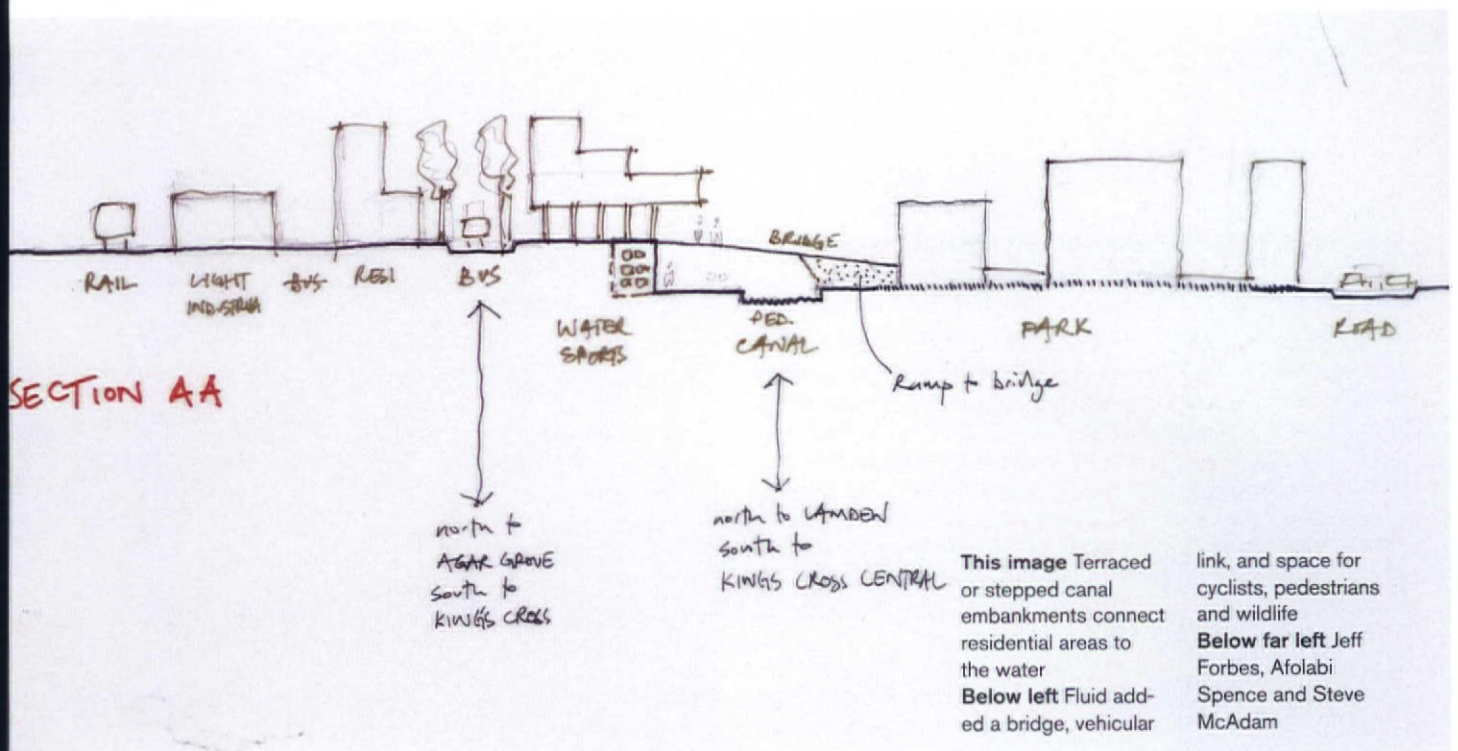 BRIDGE
RAIL
LIGHT
INDUSTRIA
BUS
RESI
BUS
WATER
SPORTS
PED.
CANAL
PARK
ROAD
SECTION AA
Ramp to bridge
north to
AGAR GROVE
south to
KING'S CROSS
north to CAMDEN
south to
KINGS CROSS CENTRAL
This image Terraced
or stepped canal
embankments connect
residential areas to
the water
Below left Fluid add-
ed a bridge, vehicular
link, and space for
cyclists, pedestrians
and wildlife
Below far left Jeff
Forbes, Afolabi
Spence and Steve
McAdam